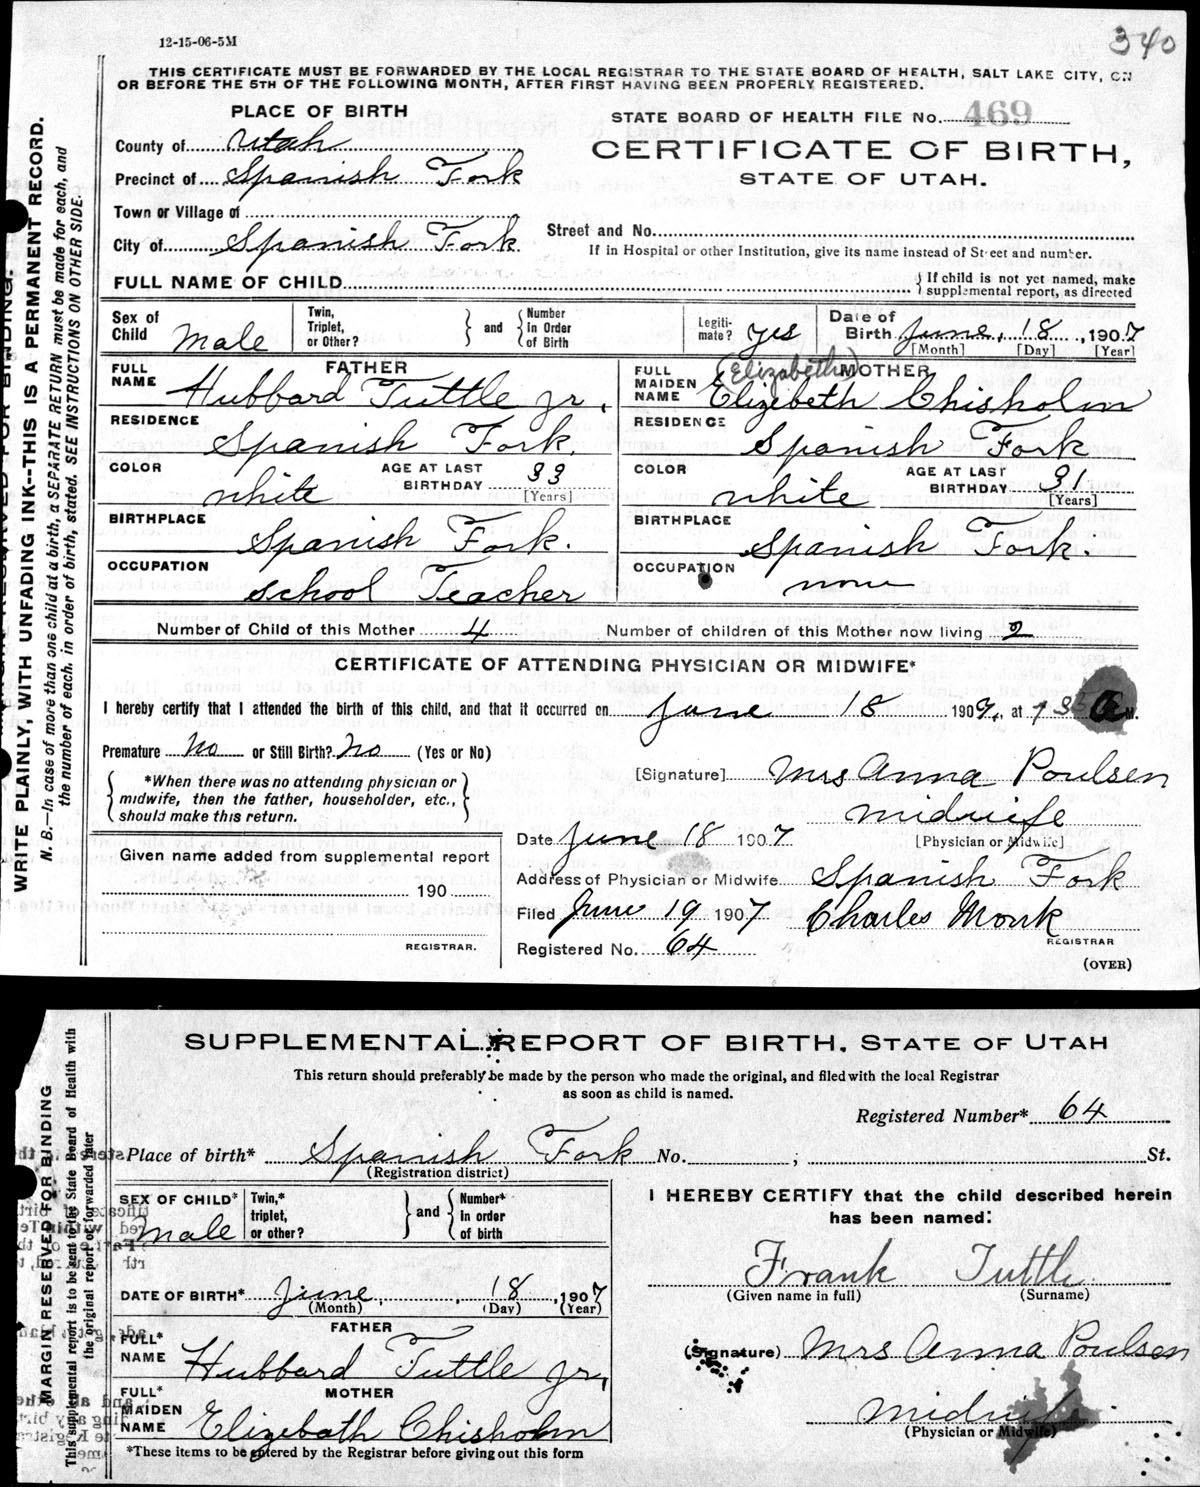 340
12-15-06-5M
THIS CERTIFICATE MUST BE FORWARDED BY THE LOCAL REGISTRAR TO THE STATE BOARD OF HEALTH, SALT LAKE CITY, ON
OR BEFORE THE 5TH OF THE FOLLOWING MONTH, AFTER FIRST HAVING BEEN PROPERLY REGISTERED.
WRITE PLAINLY, WITH UNFADING INK--THIS IS A PERMANENT RECORD.
N. B.—In case of more than one child at a birth, a SEPARATE RETURN must be made for each, and
the number of each, in order of birth, stated. SEE INSTRUCTIONS ON OTHER SIDE.
PLACE OF BIRTH
County of Utah
Precinct of Spanish Fork
Town or Village of
City of Spanish Fork
STATE BOARD OF HEALTH FILE No. 469
CERTIFICATE OF BIRTH,
STATE OF UTAH.
Street and No.
If in Hospital or other Institution, give its name instead of Street and number.
FULL NAME OF CHILD
If child is not yet named, make
supplemental report, as directed
Sex of Child Male
Twin, Triplet, or Other?
and
Number in Order of Birth
Legiti-mate? yes
Date of Birth June, 18, 1907
[Month] [Day] [Year]
FATHER
FULL NAME Hubbard Tuttle Jr.
RESIDENCE Spanish Fork.
COLOR white
AGE AT LAST BIRTHDAY 33
[Years]
BIRTHPLACE Spanish Fork.
OCCUPATION School Teacher
MOTHER
(Elizabeth)
FULL MAIDEN NAME Elizebeth Chisholm
RESIDENCE Spanish Fork
COLOR white
AGE AT LAST BIRTHDAY 31
[Years]
BIRTHPLACE Spanish Fork.
OCCUPATION none
Number of Child of this Mother 4
Number of children of this Mother now living 2
CERTIFICATE OF ATTENDING PHYSICIAN OR MIDWIFE*
I hereby certify that I attended the birth of this child, and that it occurred on June 18 1907, at M.
Premature No or Still Birth? No (Yes or No)
*When there was no attending physician or
midwife, then the father, householder, etc.,
should make this return.
[Signature] Mrs Anna Poulsen
midwife
[Physician or Midwife]
Date June 18 1907
Address of Physician or Midwife Spanish Fork
Filed June 19 1907 Charles Monk
REGISTRAR
Registered No. 64
(OVER)
Given name added from supplemental report
190
REGISTRAR.
SUPPLEMENTAL REPORT OF BIRTH, STATE OF UTAH
This return should preferably be made by the person who made the original, and filed with the local Registrar
as soon as child is named.
MARGIN RESERVED FOR BINDING
This supplemental report is to be sent to the State Board of Health with
the original report or forwarded later
Registered Number* 64
Place of birth* Spanish Fork No. ; St.
(Registration district)
SEX OF CHILD* Male
Twin,* triplet, or other?
and
Number* in order of birth
DATE OF BIRTH* June, 18, 1907
(Month) (Day) (Year)
FATHER
FULL* NAME Hubbard Tuttle Jr,
MOTHER
FULL* MAIDEN NAME Elizebath Chisholm
*These items to be entered by the Registrar before giving out this form
I HEREBY CERTIFY that the child described herein
has been named:
Frank Tuttle
(Given name in full) (Surname)
(Signature) Mrs Anna Poulsen
midwife
(Physician or Midwife)